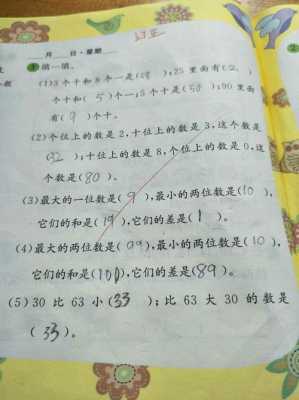 月 日·星期
1 填一填。
(1)3个十和8个一是(38);25里面有(2)
个十和(5)个一;5个十是(50);90里面
有(9)个十。
(2)个位上的数是2,十位上的数是3,这个数是
(32);十位上的数是8,个位上的数是0,这
个数是(80)。
(3)最大的一位数是(9),最小的两位数是(10),
它们的和是(19),它们的差是(1)。
(4)最大的两位数是(99),最小的两位数是(10),
它们的和是(100),它们的差是(89)。
(5)30比63小(33);比63大30的数是
(33)。